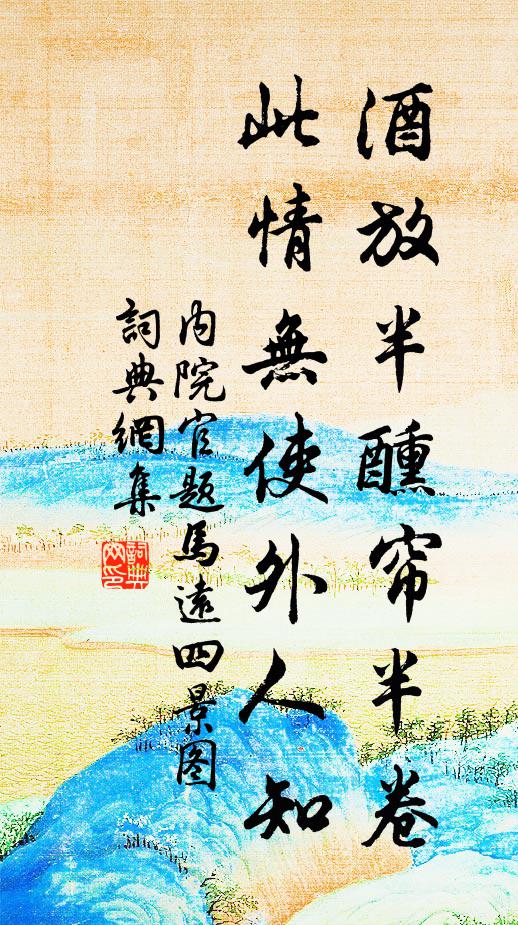 酒放半醺帘半卷
此情無使外人知
内院官题馬遠四景图
詞典網集
詞典网印